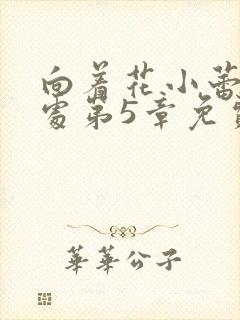 向着花小蕾
处第5章免费
華華公子